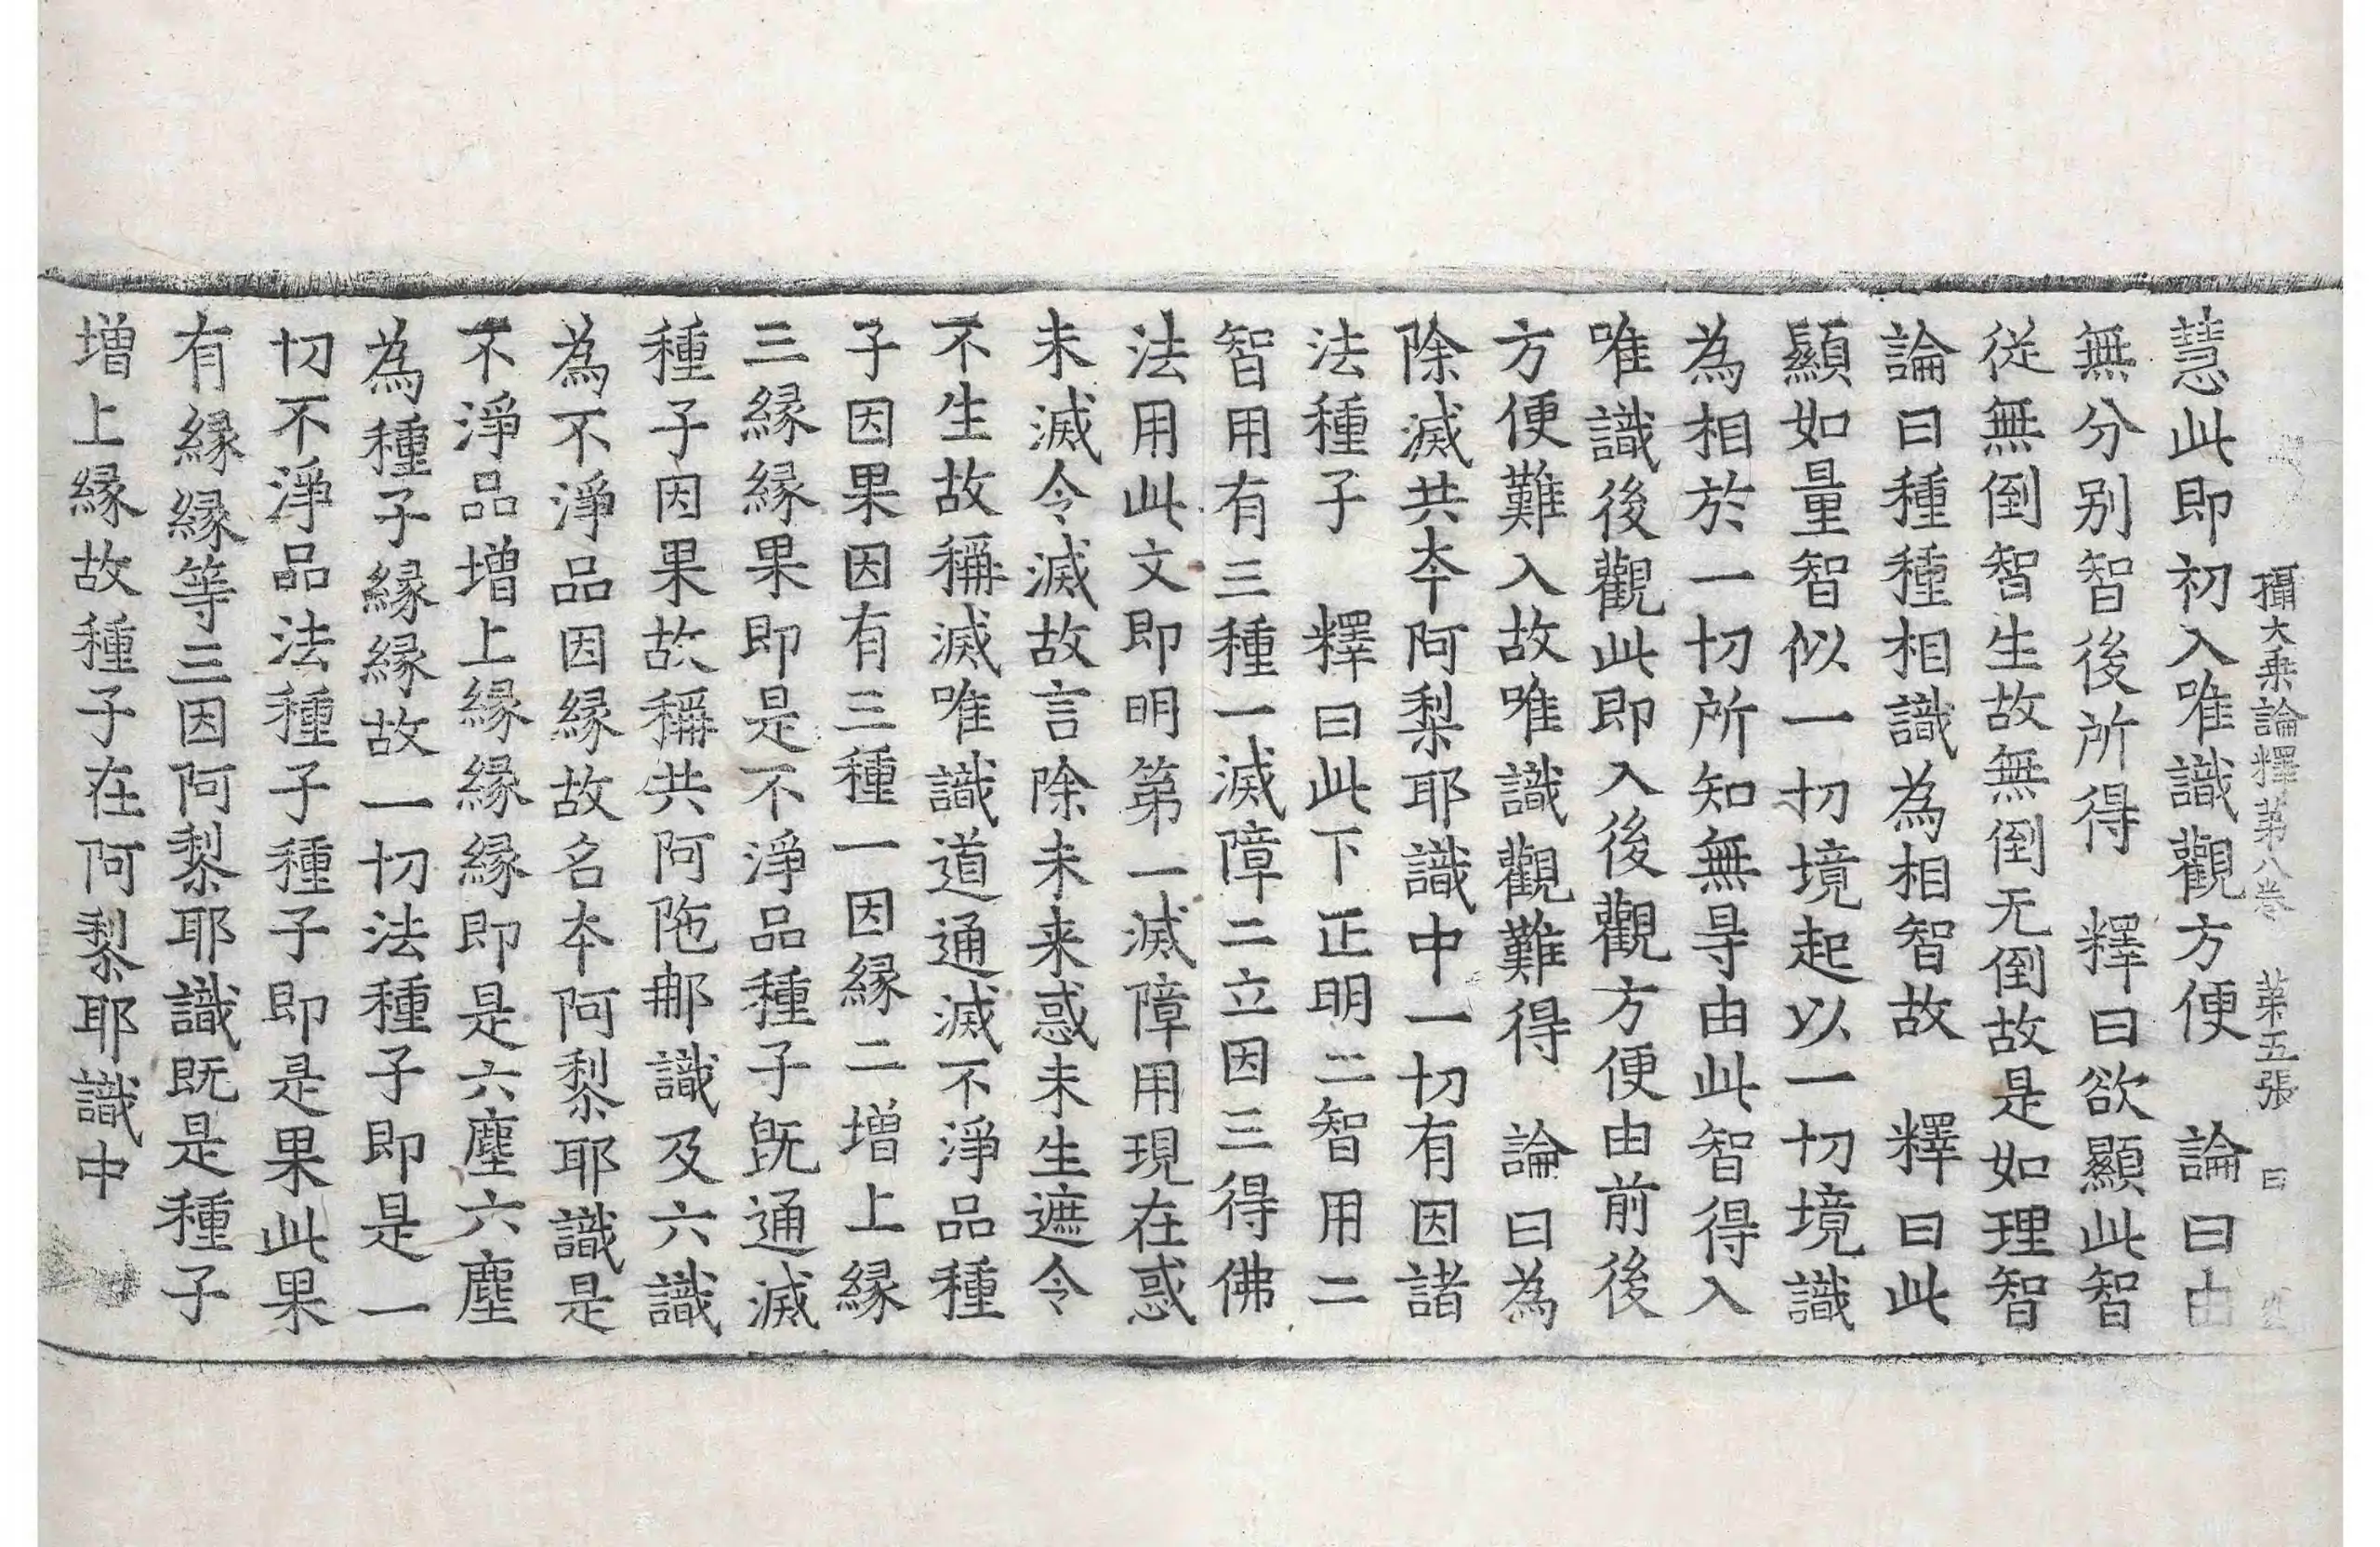 攝大乗論釋第八卷 第五張 曰
慧此即初入唯識觀方便 論曰由
無分别智後所得 釋曰欲顯此智
従無倒智生故無倒无倒故是如理智
論曰種種相識為相智故 釋曰此
顯如量智似一切境起以一切境識
為相於一切所知無㝵由此智得入
唯識後觀此即入後觀方便由前後
方便難入故唯識觀難得 論曰為
除滅共夲阿梨耶識中一切有因諸
法種子 釋曰此下正明二智用二
智用有三種一滅障二立因三得佛
法用此文即明第一滅障用現在惑
未滅令滅故言除未来惑未生遮令
不生故稱滅唯識道通滅不淨品種
子因果因有三種一因縁二増上縁
三縁縁果即是不淨品種子旣通滅
種子因果故稱共阿陁郍識及六識
為不淨品因縁故名夲阿黎耶識是
不淨品増上縁縁縁即是六塵六塵
為種子縁縁故一切法種子即是一
切不淨品法種子種子即是果此果
有縁縁等三因阿黎耶識既是種子
増上縁故種子在阿黎耶識中